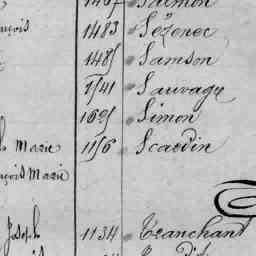 nçois 1483 Sézenec
1485 Samson
1541 Sauvage
1695 Simon
Marie 1156 Scardin
nçois Marie
Joseph 1134 Tranchant